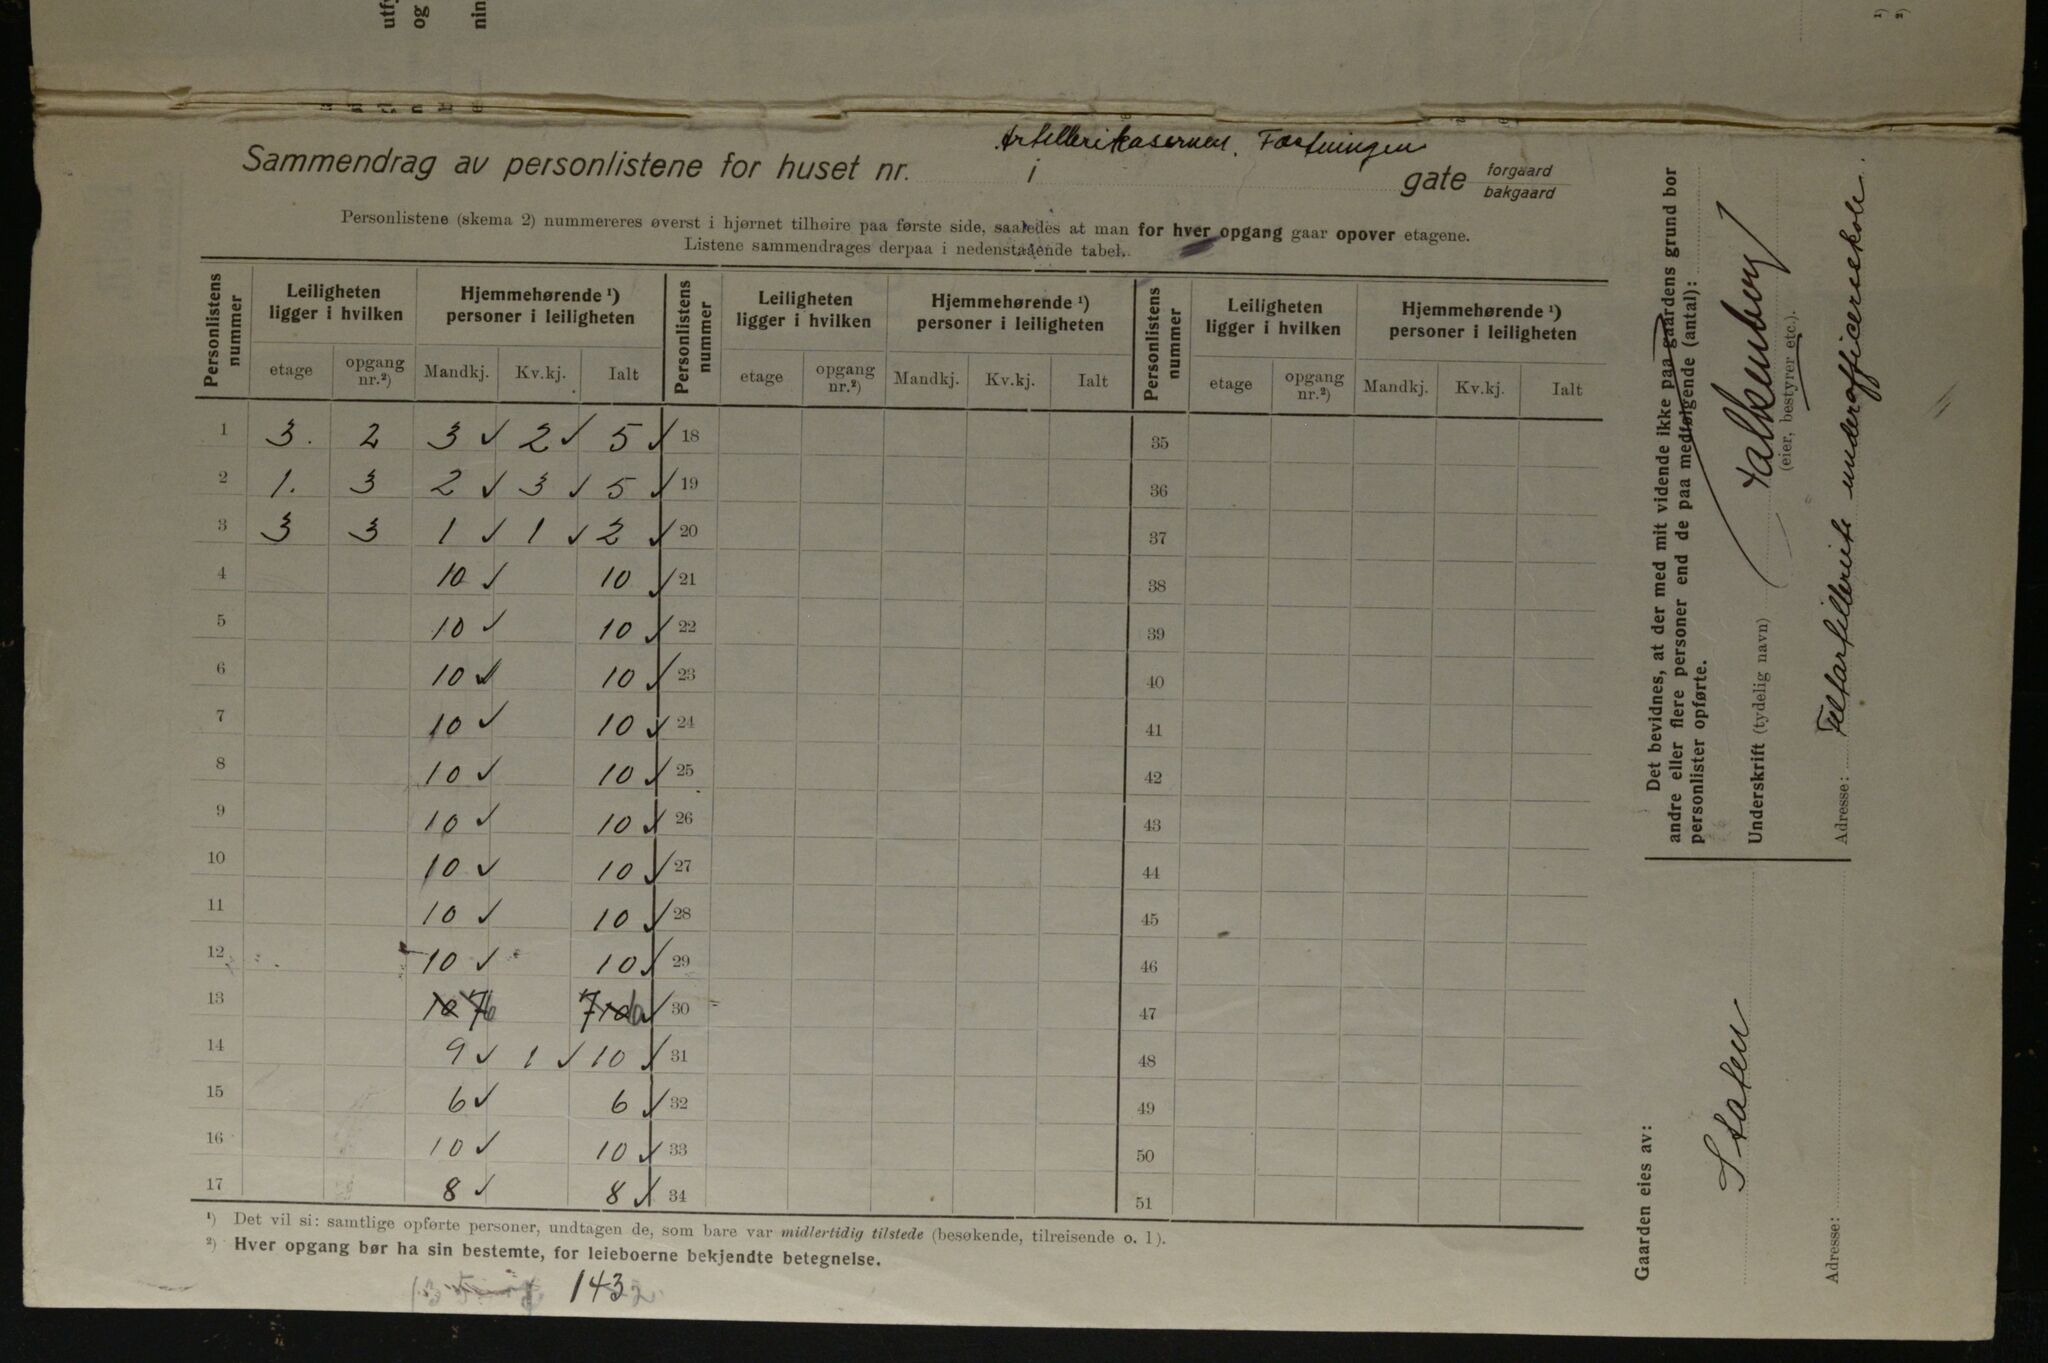 Artillerikasernen. Fæstningen
Sammendrag av personlistene for huset nr. i gate forgaard bakgaard
Personlistene (skema 2) nummereres øverst i hjørnet tilhøire paa første side, saaledes at man for hver opgang gaar opover etagene.
Listene sammendrages derpaa i nedenstaaende tabel.
Personlistens nummer Leiligheten ligger i hvilken Hjemmehørende ¹) personer i leiligheten Personlistens nummer Leiligheten ligger i hvilken Hjemmehørende ¹) personer i leiligheten Personlistens nummer Leiligheten ligger i hvilken Hjemmehørende ¹) personer i leiligheten
etage opgang nr.²) Mandkj. Kv.kj. Ialt etage opgang nr.²) Mandkj. Kv.kj. Ialt etage opgang nr.²) Mandkj. Kv.kj. Ialt
1 3. 2 3 ✓ 2 ✓ 5 ✓ 18 35
2 1. 3 2 ✓ 3 ✓ 5 ✓ 19 36
3 3 3 1 ✓ 1 ✓ 2 ✓ 20 37
4 10 ✓ 10 ✓ 21 38
5 10 ✓ 10 ✓ 22 39
6 10 ✓ 10 ✓ 23 40
7 10 ✓ 10 ✓ 24 41
8 10 ✓ 10 ✓ 25 42
9 10 ✓ 10 ✓ 26 43
10 10 ✓ 10 ✓ 27 44
11 10 ✓ 10 ✓ 28 45
12 10 ✓ 10 ✓ 29 46
13 10 7 6 7 10 6 ✓ 30 47
14 9 ✓ 1 ✓ 10 ✓ 31 48
15 6 ✓ 6 ✓ 32 49
16 10 ✓ 10 ✓ 33 50
17 8 ✓ 8 ✓ 34 51
¹) Det vil si: samtlige opførte personer, undtagen de, som bare var midlertidig tilstede (besøkende, tilreisende o. l).
²) Hver opgang bør ha sin bestemte, for leieboerne bekjendte betegnelse.
143
Det bevidnes, at der med mit vidende ikke paa gaardens grund bor
andre eller flere personer end de paa medfølgende (antal):
personlister opførte.
Underskrift (tydelig navn) Falkenberg
(eier, bestyrer etc.).
Adresse: Feltartilleriets underofficersskole.
Gaarden eies av:
Staten
Adresse: